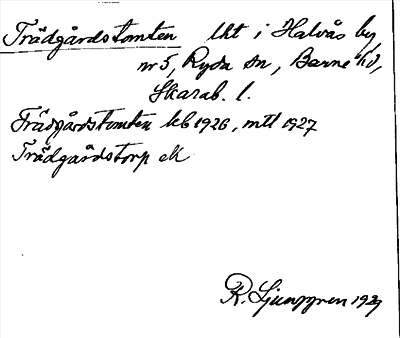 Trädgårdstomten lht i Halvås by,
nr 5, Ryda sn, Barne hd,
Skarab. l.
Trädgårdstomten kb 1926, mtl 1927
Trädgårdstorp ek
R. Ljunggren 1927